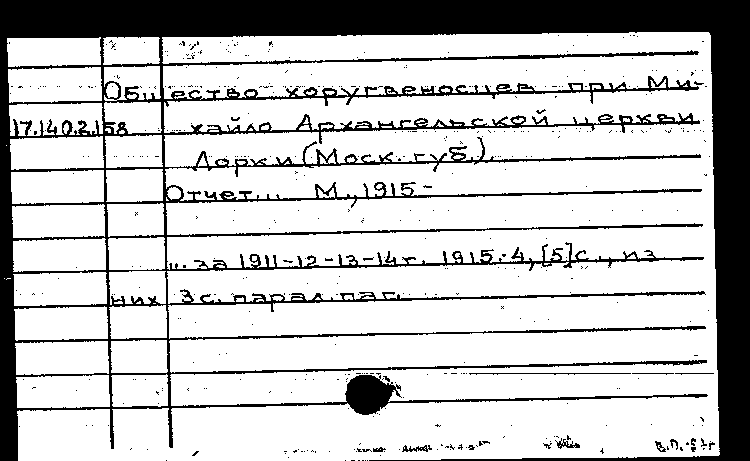 Общество хоругвеносцев при Ми-
17.140.2.158 хайло Архангельской церкви
Лорки (Моск. губ.).
Отчет... М., 1915-
... за 1911-12-13-14г. 1915. 4, [5]с., из
них 3с. парал. паг.